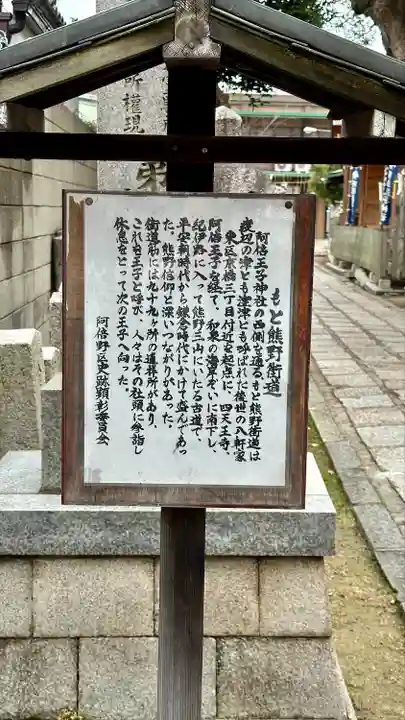 所權現
もと熊野街道
阿倍王子神社の西側を通る、もと熊野街道は
渡辺の津とも窪津とも呼ばれた後世の八軒家
東区京橋三丁目付近を起点に、四天王寺、
阿倍王子を経て、和泉の海岸ぞいに南下し、
紀伊路に入って熊野三山にいたる古道で、
平安朝時代から鎌倉時代にかけて盛んであっ
た。熊野信仰と深いつながりがあった。
街道筋には九十九ヶ所の遥拝所があり、
これを王子と呼び 人々はその社頭に参詣し
休息をとって次の王子へ向った。
阿倍野区史跡顕彰委員会